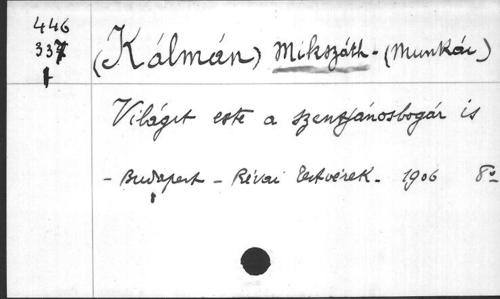 446
337
1
(Kálmán) Mikszáth - (Munkái)
Világit este a szentjánosbogár is
- Budapest - Révai Testvérek - 1906 8°